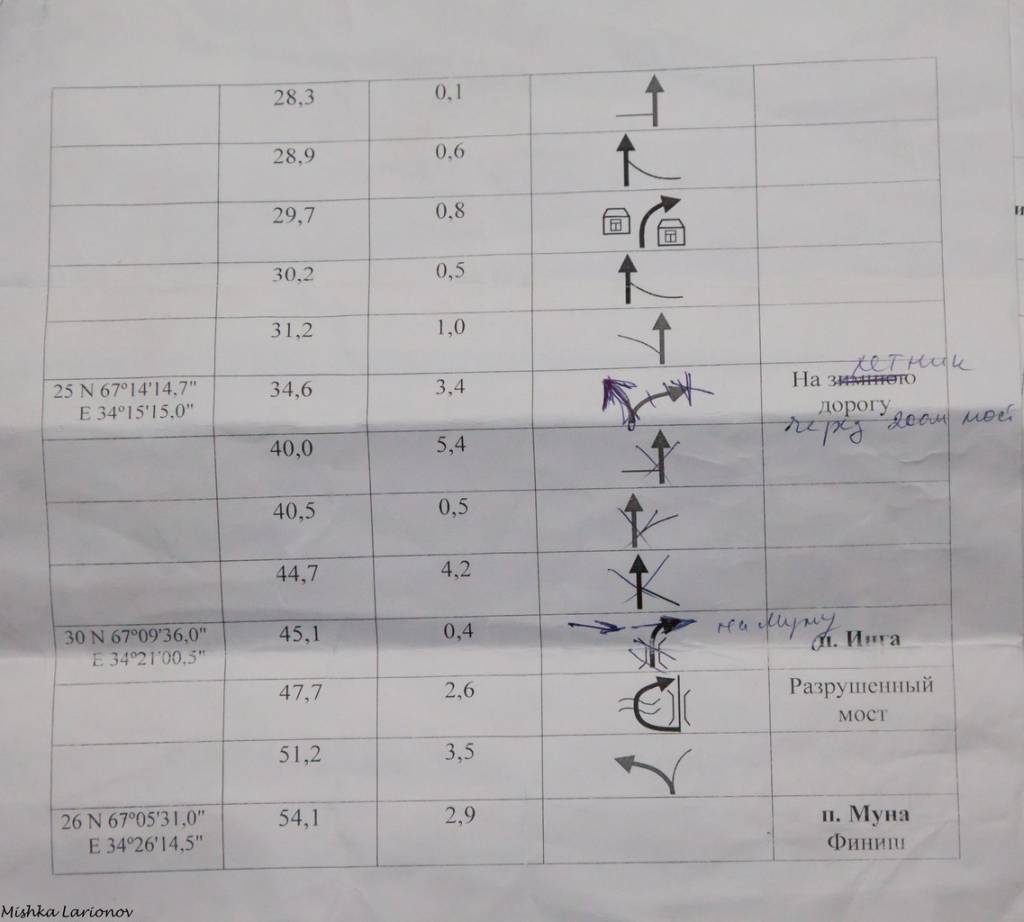 28,3 0,1
28,9 0,6
29,7 0,8
30,2 0,5
31,2 1,0
летник
25 N 67°14'14,7" 34,6 3,4 На зимнюю
E 34°15'15,0" дорогу
через 200м мост
40,0 5,4
40,5 0,5
44,7 4,2
на Муну
30 N 67°09'36,0" 45,1 0,4 п. Инга
E 34°21'00,5"
47,7 2,6 Разрушенный
мост
51,2 3,5
26 N 67°05'31,0" 54,1 2,9 п. Муна
E 34°26'14,5" Финиш
Mishka Larionov